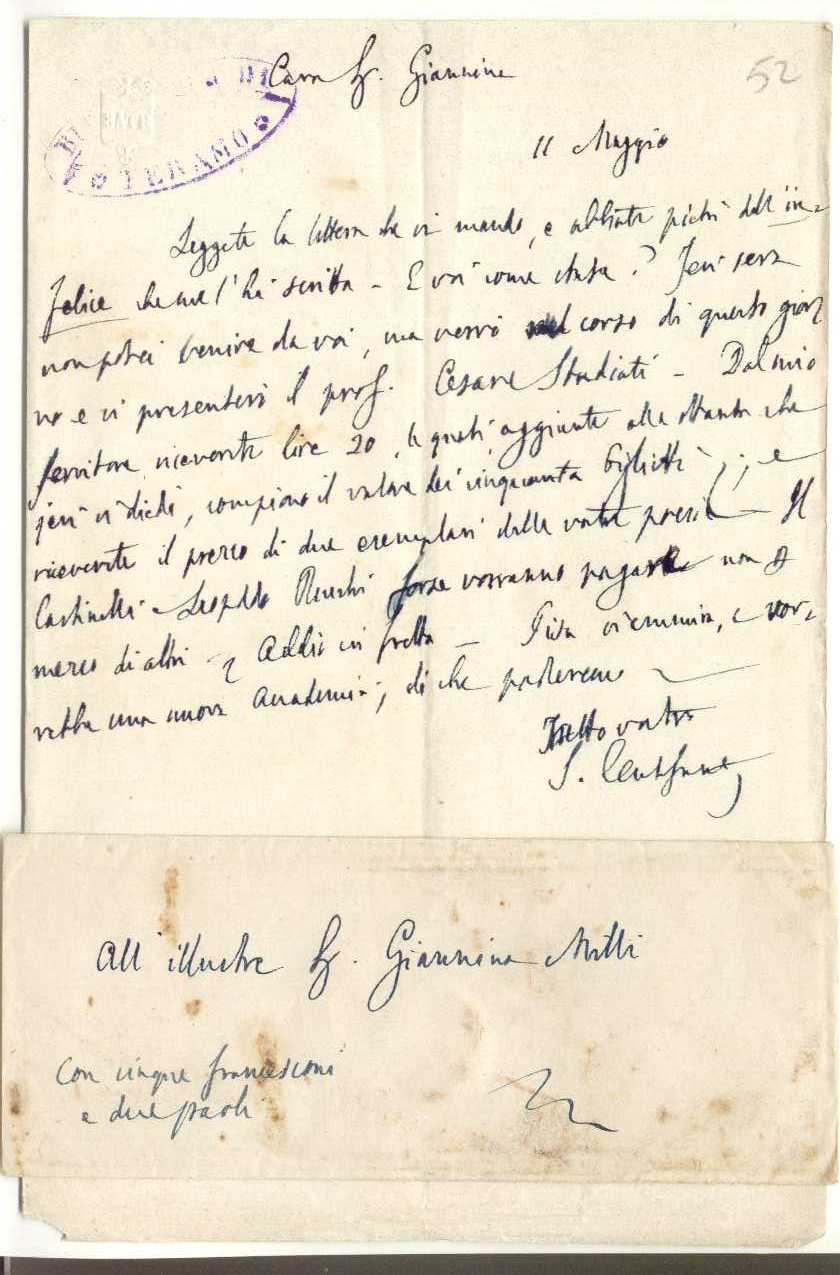 52
Cara Sg. Giannina
TERAMO
11 Maggio
Leggete la lettera che vi mando, e abbiate pietà dell'in=
felice che me l'ha scritta – E voi come state? Jeri sera
non potei venire da voi, ma verrò nel corso di questo gior=
no e vi presenterò il prof. Cesare Studiati – Dal mio
servitore riceverete lire 20, le quali, aggiunte alle ottanta che
jeri vi diedi, compiono il valore dei cinquanta biglietti; e
riceverete il prezzo di due esemplari delle vostre poesie – Il
Castinelli e Leopoldo forse vorranno pagare non a
mezzo di altri – Addio in fretta – Pisa v'ammira, e vor=
rebbe una nuova Accademia; di che parleremo –
Tutto vostro
S. Centofanti
All'illustre Sg. Giannina Milli
Con cinque francesconi
e due paoli